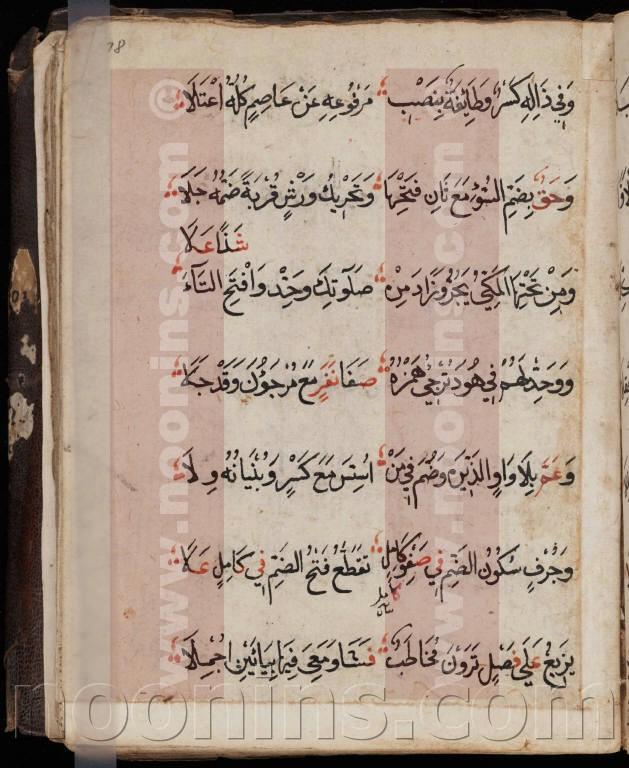 78
وَفِي ذَالِهِ كَسْرٌ وَطَائِفَةٌ بِنَصْبِ مَرْفُوعِهِ عَنْ عَاصِمٍ كُلُّهُ اعْتَلَا
وَحَقٌّ بِضَمِّ السُّوءِ مَعَ ثَانِ فَتْحِهَا وَتَحْرِيكُ وَرْشٍ قُرْبَةٌ ضَمُّهُ جَلَا
شَذًا عَلَا
وَمِنْ تَحْتِهَا الْمَكِّيُّ يَجُرُّ وَزَادَ مِنْ صَلَوتَكَ وَحِّدْ وَافْتَحِ التَّاءَ
وَوَحِّدْ لَهُمْ فِي هُودَ تُرْجِئُ هَمْزُهُ صَفَا نَفَرٍ مَعْ مُرْجَؤُنَ وَقَدْ حَلَا
وَعَمَّ بِلَا وَاوِ الَّذِينَ وَضُمَّ فِي مَنْ اسَّسَ مَعْ كَسْرٍ وَبُنْيَانُهُ وِلَا
وَجُرْفٍ سُكُونُ الضَّمِّ فِي صَفْوِ كَامِلٍ تَقَطَّعُ فَتْحُ الضَّمِّ فِي كَامِلٍ عَلَا
يَزِيغُ عَلَى فَصْلٍ تَرَوْنَ مُخَاطَبٌ فَشَا وَمَعِي فِيهَا بِيَائَيْنِ اجْمِلَا
www.noonins.com
www.noonins.com
noonins.com